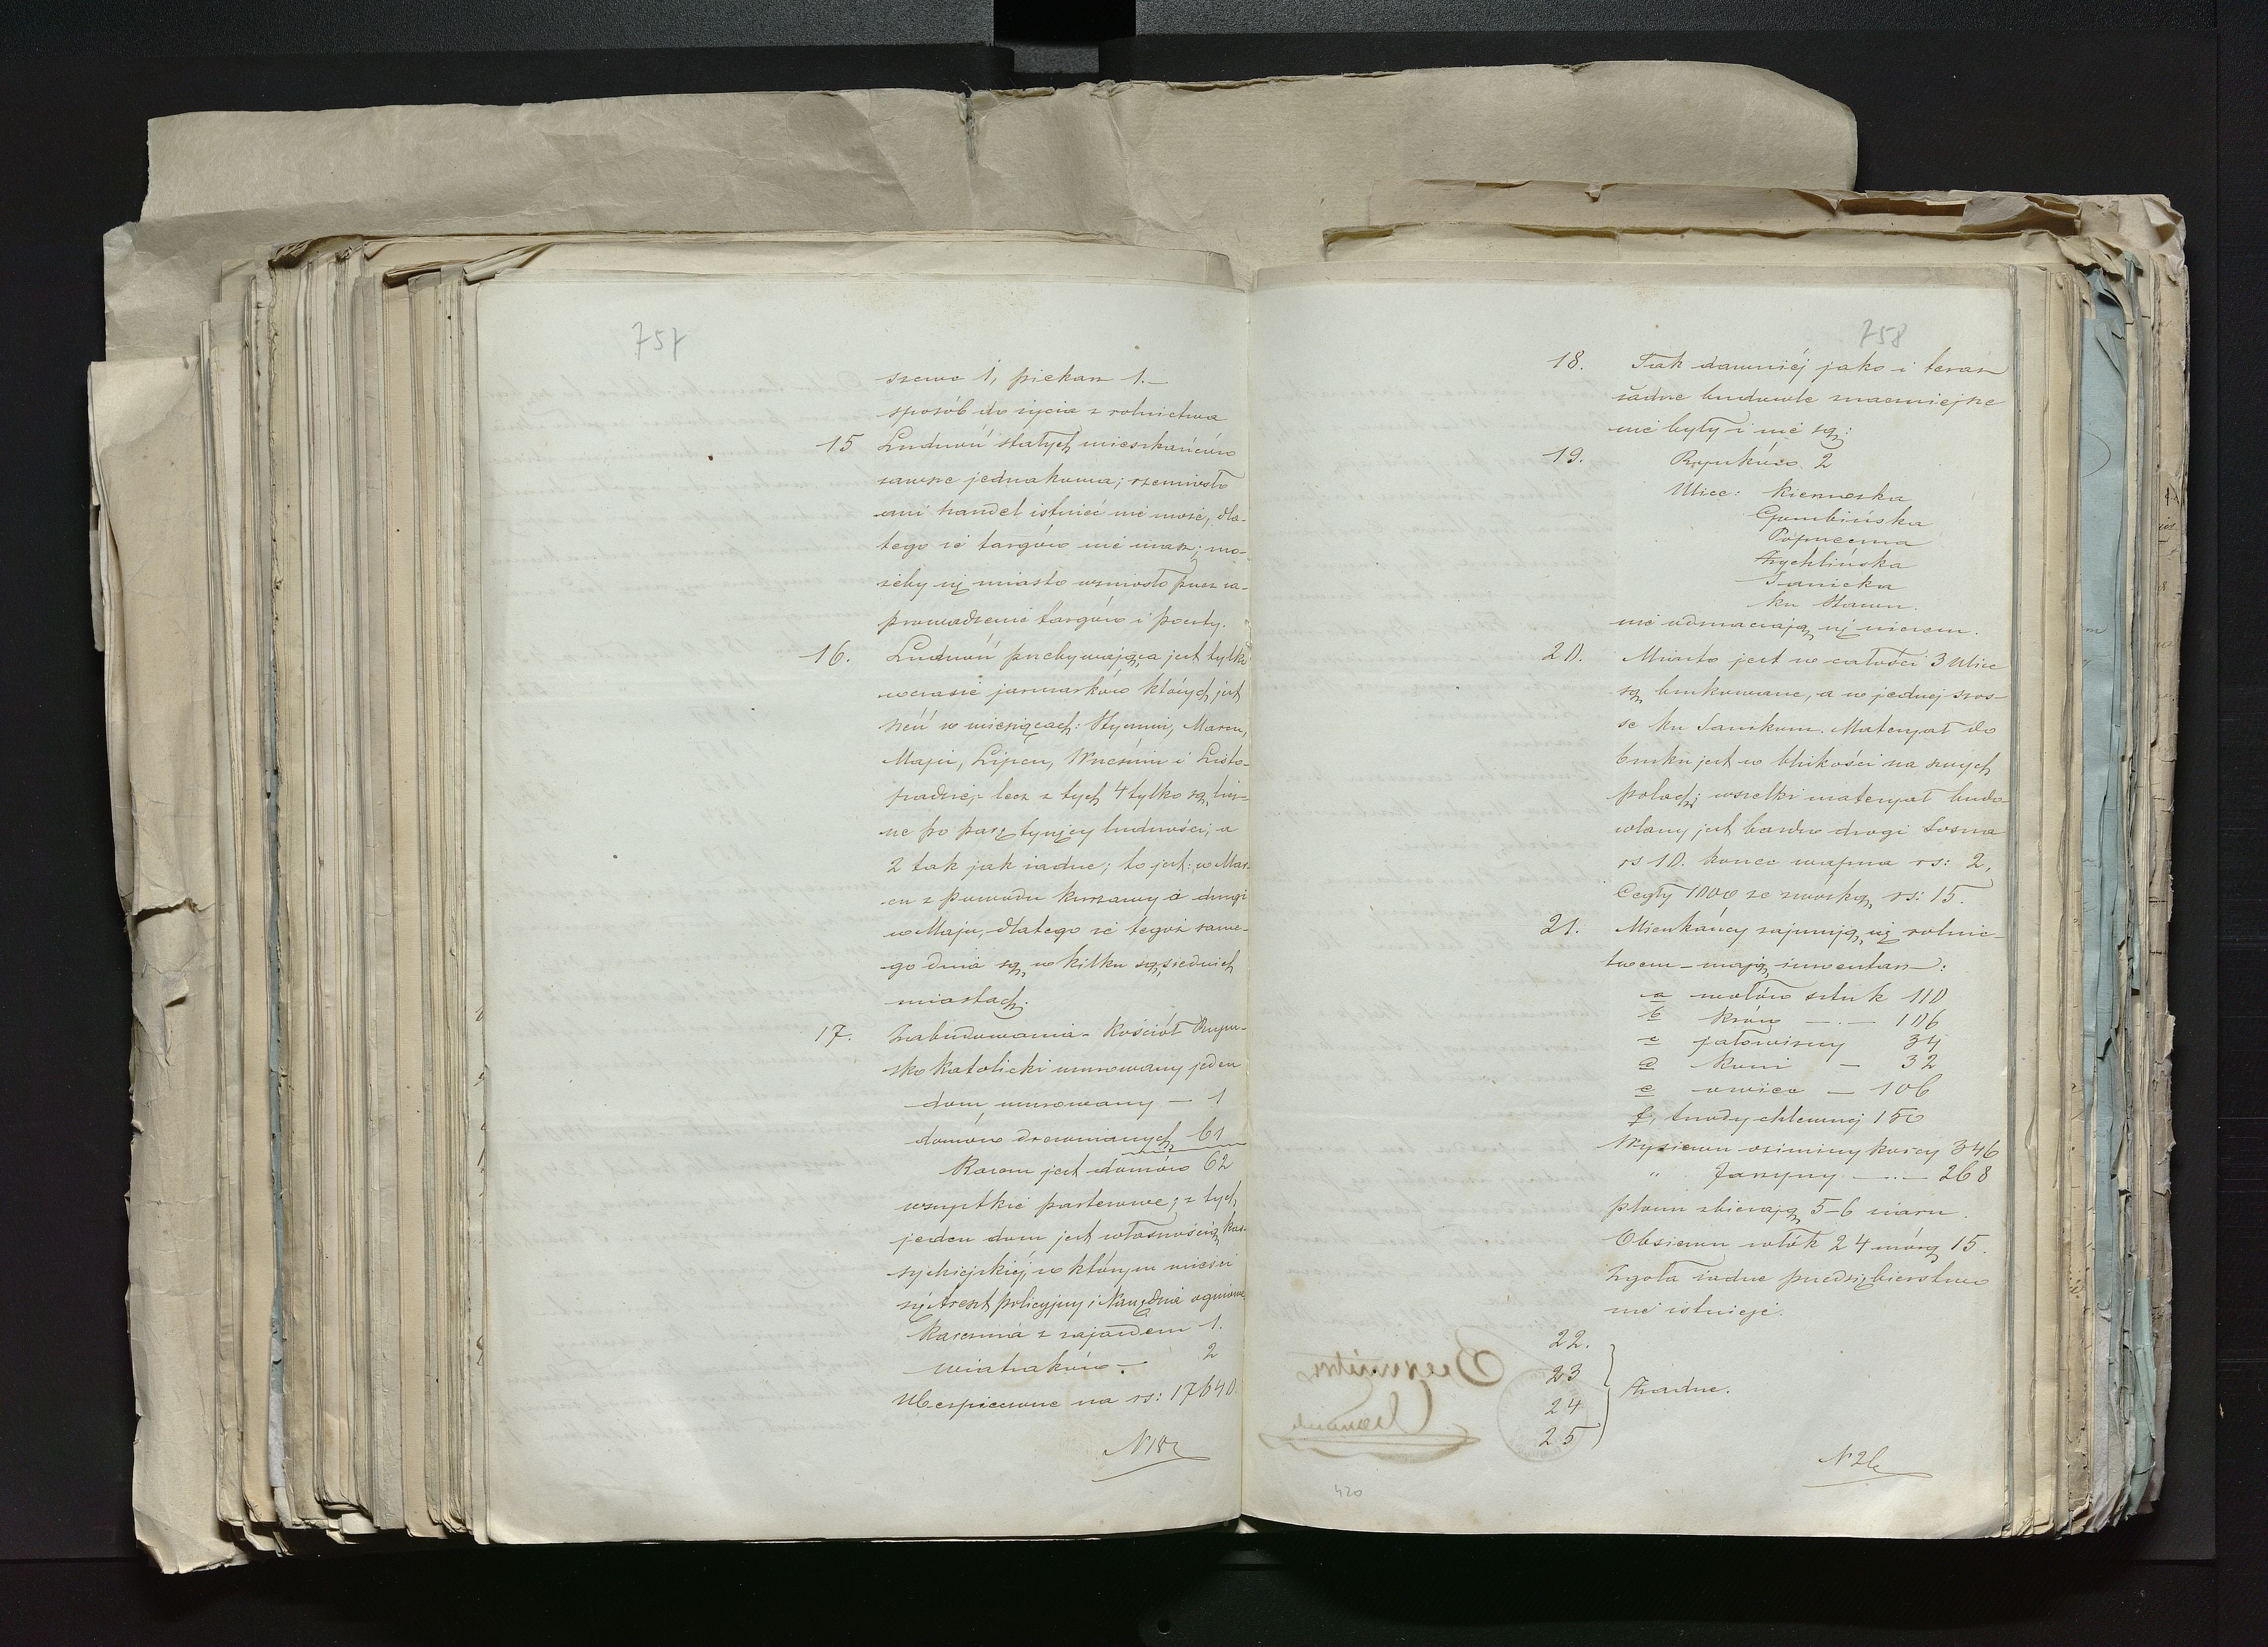 757
szewc 1, piekarz 1.—
sposób do życia z rolnictwa
15 Ludność stałych mieszkańców
zawsze jednakowa; rzemiosło
ani handel istnieć nie może, dla-
tego że targów nie masz; mo-
żeby się miasto wzniosło przez za-
prowadzenie targów i poczty.
16. Ludność przebywająca jest tylko
w czasie jarmarków których jest
sześć w miesiącach: Styczniu, Marcu,
Maju, Lipcu, Wrześniu i Listo-
padzie; lecz z tych 4 tylko są licz-
ne po parę tysięcy ludności, a
2 tak jak żadne; to jest: w Mar-
cu z powodu kurzawy a drugi
w Maju, dlatego że tegoż same-
go dnia są w kilku sąsiednich
miastach.
17. Zabudowania – Kościół Rzym-
sko Katolicki murowany jeden
dom murowany — 1
domów drewnianych 61
Razem jest domów 62
wszystkie parterowe; z tych
jeden dom jest własnością kas-
sy miejskiej, w którym mieści
się Areszt policyjny i Narzędzia ogniowe
Karczma z zajazdem 1.
Wiatraków — 2
Ubezpieczone na rs: 17640.
N 18
758
18. Tak dawniéj jako i teraz
żadne budowle znaczniejsze
nie były i nie są:
19. Rynków 2
Ulice: Kiernoska
Gombińska
Poprzeczna
Żychlińska
Sanicka
ku Stawu.
nie odznaczają się niczem.
20. Miasto jest w całości 3 Ulice
są brukowane, a w jednej szos-
se ku Sanikom. Materyał do
bruku jest w bliskości na swych
polach; wszelki materyał budo-
wlany jest bardzo drogi Sosna
rs 10. korzec wapna rs: 2,
Cegły 1000 ze zwózką rs: 15.
21. Mieszkańcy zajmują się rolnic-
twem – mają inwentarz:
a wołów sztuk 110
b krów —.— 106
c jałowizny 34
d koni — 32
e owiec — 106
f, trzody chlewnej 150
Wysiewu oziminy korcy 346
" Jarzyny —..— 268
plonu zbierają 5–6 ziarn.
Obsiewu włók 24 mórg 15.
Zgoła żadne przedsiębierstwo
nie istnieje.
22.
23
24
25
Żadne.
N 26
420